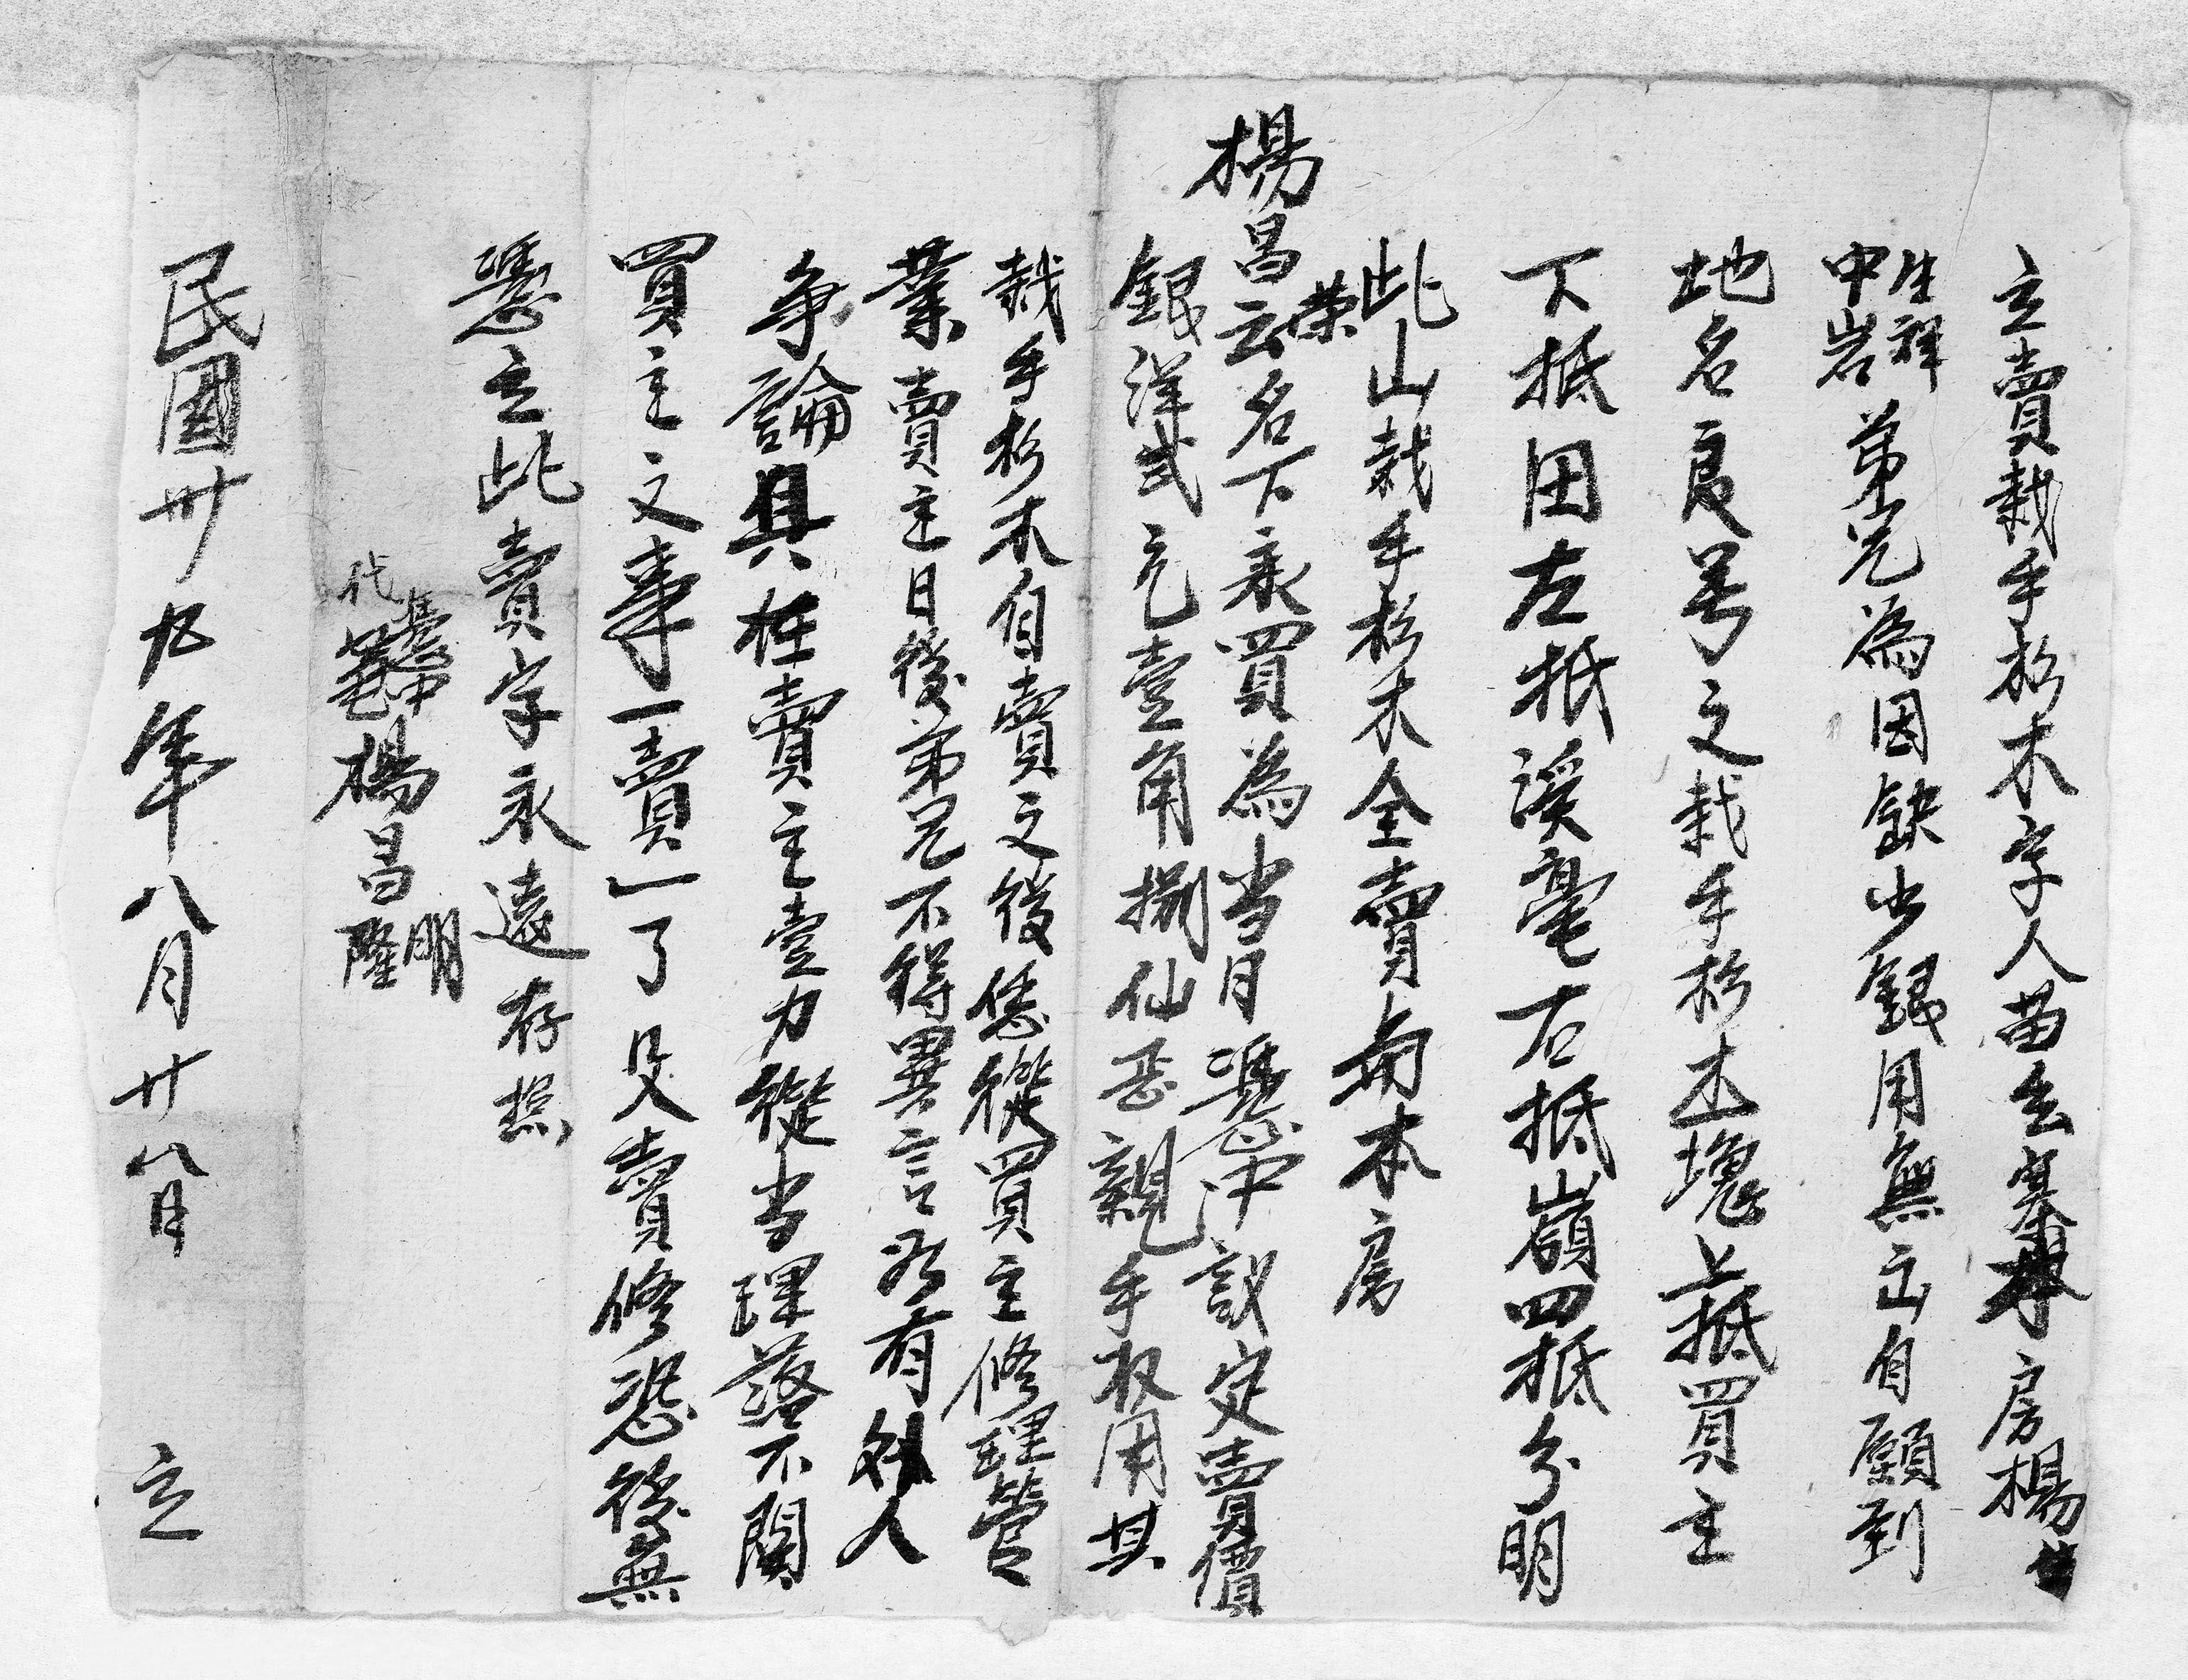 立賣栽手杉木字人苗去寨本房楊
生祥
中岩弟兄為因缺少銀用無出自願到
地名良号之栽手杉木塊上抵買主
下抵田左抵溪毫右抵嶺四抵分明
此山栽手杉木全賣與本房
楊昌云榮名下承買為当日憑中議定賣價
銀洋弍元壹角捌仙正親手收用其
栽手杉木自賣之後恁從買主修理管
業賣主日後弟兄不得異言若有外人
争論具在賣主壹力從当理落不関
買主之事一賣一了父賣修恐後無
憑立此賣字永遠存照
憑中
代筆楊昌明隆
民國卅九年八月廿八日 立